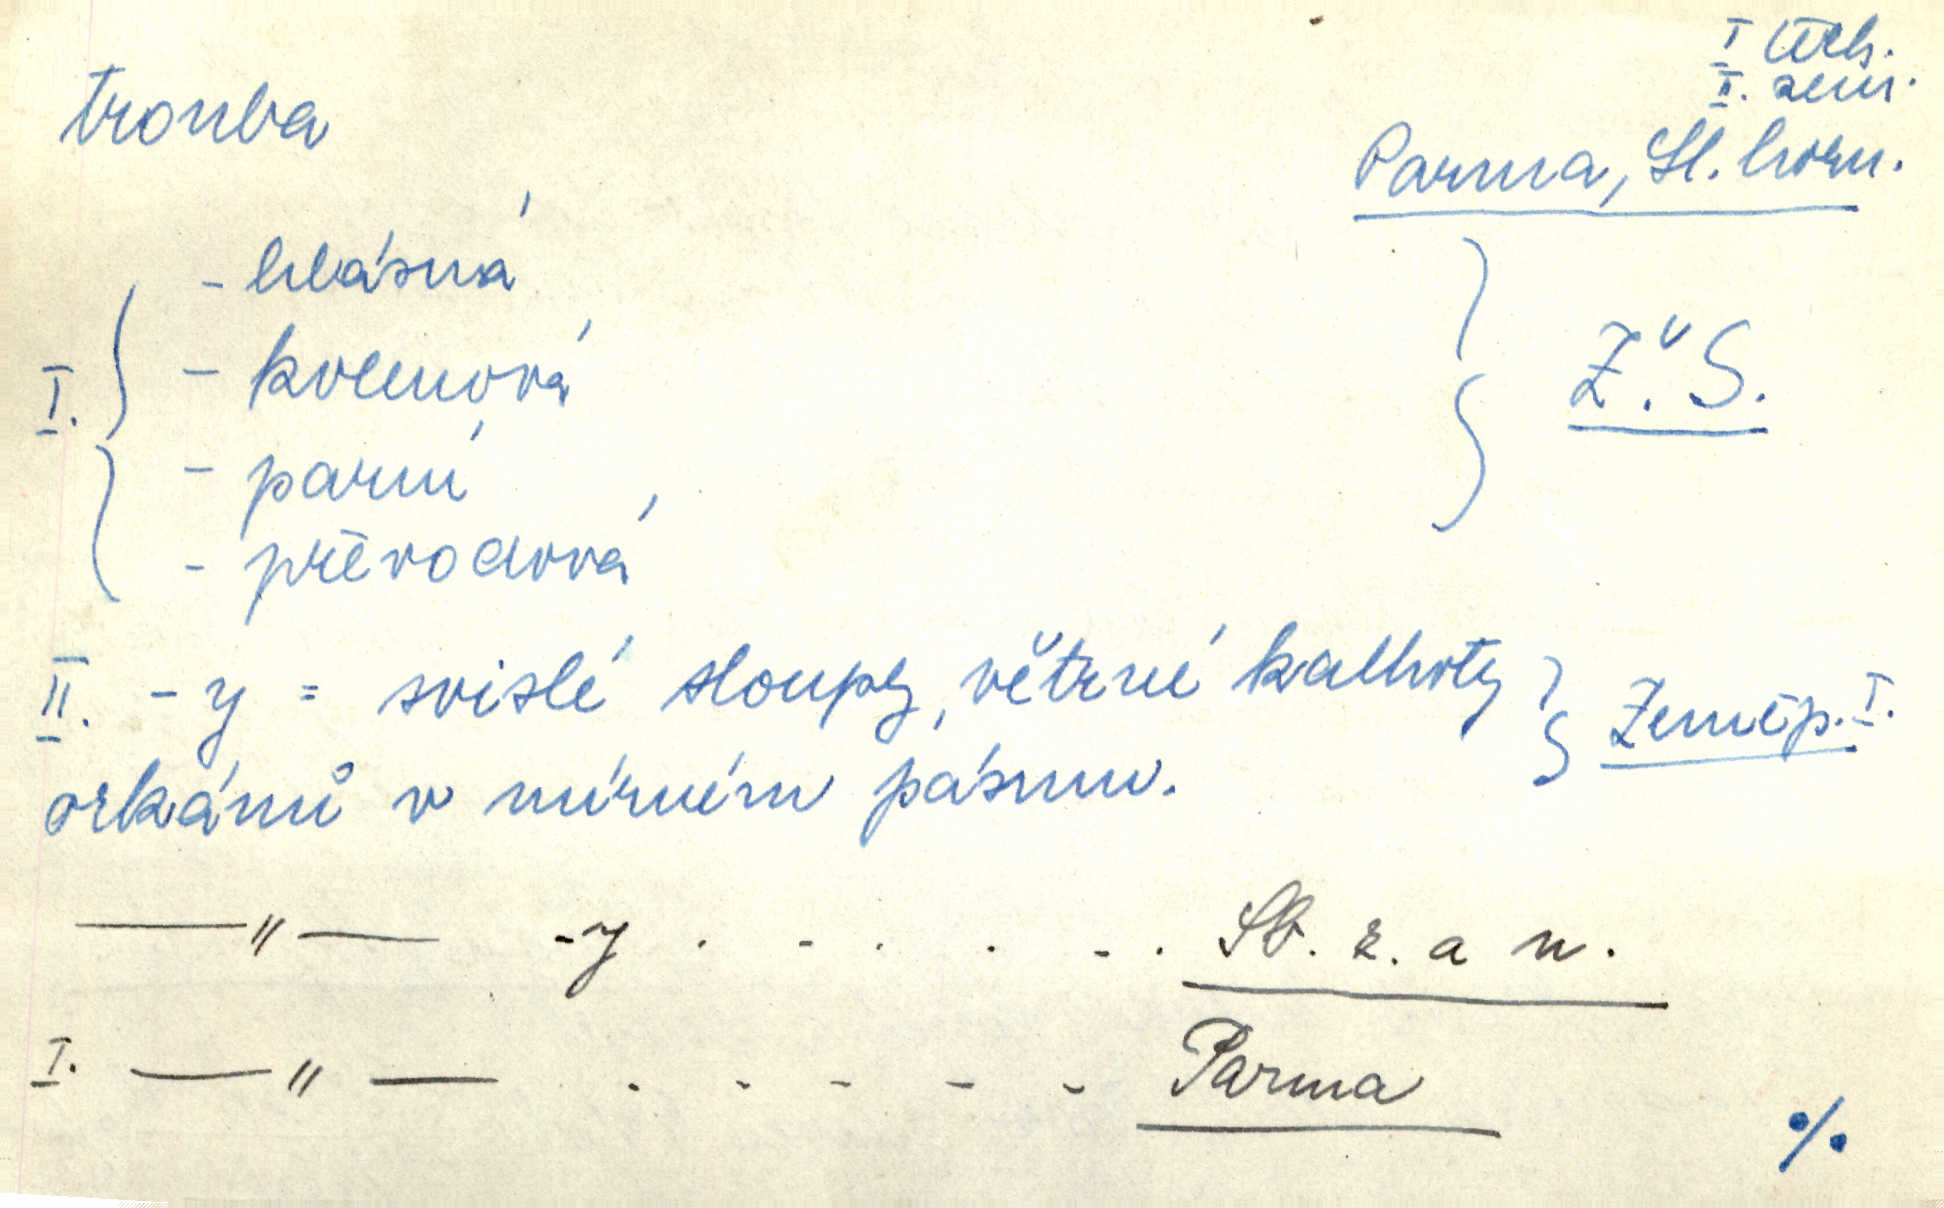 I tech.
II. zem.
trouba
Parma, Sl. horn.
- hlásná
- kolenová
I.
Ž. S.
- parní
- převodová
II. - y = svislé sloupy, větrné kalhoty
Zeměp. I.
orkánů v mírném pásmu.
—〃— -y . - . . - . Sb. z. a n.
I. —〃— . - - - - Parma
%